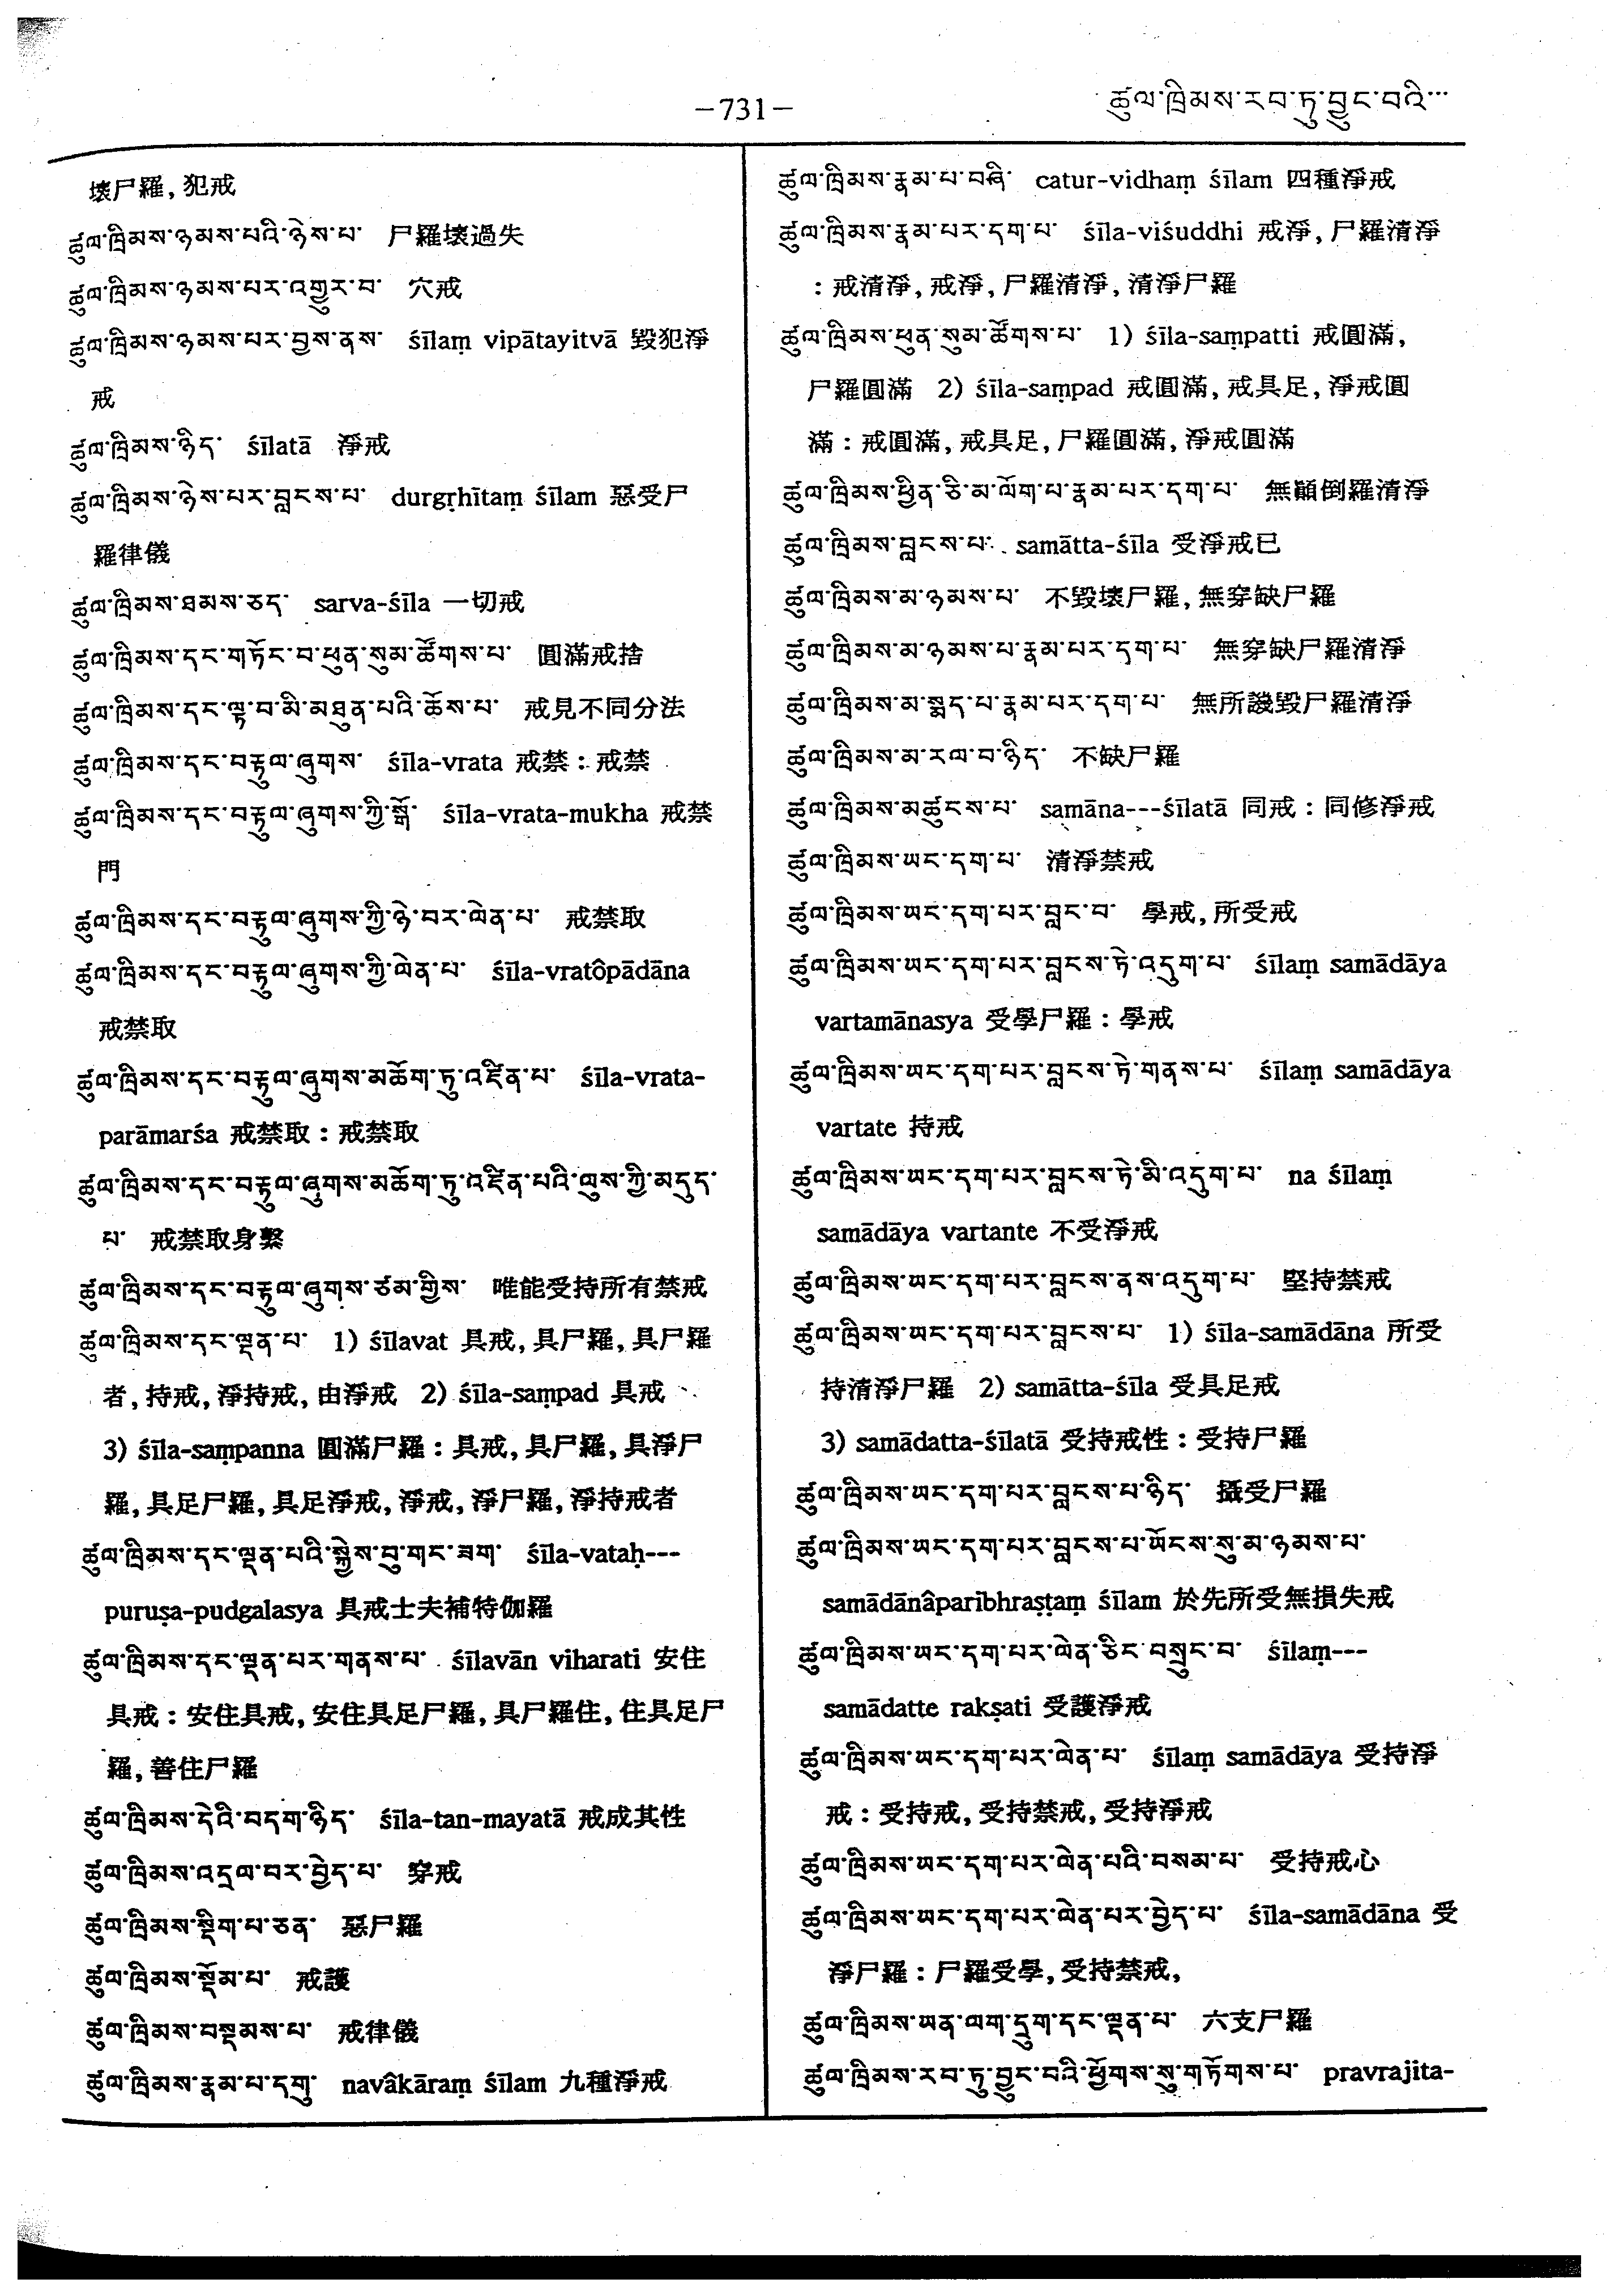 —731—
ཚུལ་ཁྲིམས་རབ་ཏུ་བྱུང་བའི…
壞尸羅, 犯戒
ཚུལ་ཁྲིམས་ཉམས་པའི་ཉེས་པ་ 尸羅壞過失
ཚུལ་ཁྲིམས་ཉམས་པར་འགྱུར་བ་ 穴戒
ཚུལ་ཁྲིམས་ཉམས་པར་བྱས་ནས་ śīlaṃ vipātayitvā 毀犯淨
戒
ཚུལ་ཁྲིམས་ཉིད་ śīlatā 淨戒
ཚུལ་ཁྲིམས་ཉེས་པར་བླངས་པ་ durgṛhītaṃ śīlam 惡受尸
羅律儀
ཚུལ་ཁྲིམས་ཐམས་ཅད་ sarva-śīla 一切戒
ཚུལ་ཁྲིམས་དང་གཏོང་བ་ཕུན་སུམ་ཚོགས་པ་ 圓滿戒捨
ཚུལ་ཁྲིམས་དང་ལྟ་བ་མི་མཐུན་པའི་ཆོས་པ་ 戒見不同分法
ཚུལ་ཁྲིམས་དང་བརྟུལ་ཞུགས་ śīla-vrata 戒禁 : 戒禁
ཚུལ་ཁྲིམས་དང་བརྟུལ་ཞུགས་ཀྱི་སྒོ་ śīla-vrata-mukha 戒禁
門
ཚུལ་ཁྲིམས་དང་བརྟུལ་ཞུགས་ཀྱི་ཉེ་བར་ལེན་པ་ 戒禁取
ཚུལ་ཁྲིམས་དང་བརྟུལ་ཞུགས་ཀྱི་ལེན་པ་ śīla-vratôpādāna
戒禁取
ཚུལ་ཁྲིམས་དང་བརྟུལ་ཞུགས་མཆོག་ཏུ་འཛིན་པ་ śīla-vrata-
parāmarśa 戒禁取 : 戒禁取
ཚུལ་ཁྲིམས་དང་བརྟུལ་ཞུགས་མཆོག་ཏུ་འཛིན་པའི་ལུས་ཀྱི་མདུད་
པ་ 戒禁取身繫
ཚུལ་ཁྲིམས་དང་བརྟུལ་ཞུགས་ཙམ་གྱིས་ 唯能受持所有禁戒
ཚུལ་ཁྲིམས་དང་ལྡན་པ་ 1) śīlavat 具戒, 具尸羅, 具尸羅
者, 持戒, 淨持戒, 由淨戒 2) śīla-saṃpad 具戒
3) śīla-saṃpanna 圓滿尸羅 : 具戒, 具尸羅, 具淨尸
羅, 具足尸羅, 具足淨戒, 淨戒, 淨尸羅, 淨持戒者
ཚུལ་ཁྲིམས་དང་ལྡན་པའི་སྐྱེས་བུ་གང་ཟག་ śīla-vataḥ---
puruṣa-pudgalasya 具戒士夫補特伽羅
ཚུལ་ཁྲིམས་དང་ལྡན་པར་གནས་པ་ śīlavān viharati 安住
具戒 : 安住具戒, 安住具足尸羅, 具尸羅住, 住具足尸
羅, 善住尸羅
ཚུལ་ཁྲིམས་དེའི་བདག་ཉིད་ śīla-tan-mayatā 戒成其性
ཚུལ་ཁྲིམས་འདྲལ་བར་བྱེད་པ་ 穿戒
ཚུལ་ཁྲིམས་སྡིག་པ་ཅན་ 惡尸羅
ཚུལ་ཁྲིམས་སྡོམ་པ་ 戒護
ཚུལ་ཁྲིམས་བསྡམས་པ་ 戒律儀
ཚུལ་ཁྲིམས་རྣམ་པ་དགུ་ navâkāraṃ śīlam 九種淨戒
ཚུལ་ཁྲིམས་རྣམ་པ་བཞི་ catur-vidhaṃ śīlam 四種淨戒
ཚུལ་ཁྲིམས་རྣམ་པར་དག་པ་ śīla-viśuddhi 戒淨, 尸羅清淨
: 戒清淨, 戒淨, 尸羅清淨, 清淨尸羅
ཚུལ་ཁྲིམས་ཕུན་སུམ་ཚོགས་པ་ 1) śīla-saṃpatti 戒圓滿,
尸羅圓滿 2) śīla-saṃpad 戒圓滿, 戒具足, 淨戒圓
滿 : 戒圓滿, 戒具足, 尸羅圓滿, 淨戒圓滿
ཚུལ་ཁྲིམས་ཕྱིན་ཅི་མ་ལོག་པ་རྣམ་པར་དག་པ་ 無顚倒羅清淨
ཚུལ་ཁྲིམས་བླངས་པ་ samātta-śīla 受淨戒已
ཚུལ་ཁྲིམས་མ་ཉམས་པ་ 不毀壞尸羅, 無穿缺尸羅
ཚུལ་ཁྲིམས་མ་ཉམས་པ་རྣམ་པར་དག་པ་ 無穿缺尸羅清淨
ཚུལ་ཁྲིམས་མ་སྨད་པ་རྣམ་པར་དག་པ་ 無所譏毀尸羅清淨
ཚུལ་ཁྲིམས་མ་རལ་བ་ཉིད་ 不缺尸羅
ཚུལ་ཁྲིམས་མཚུངས་པ་ samāna---śīlatā 同戒 : 同修淨戒
ཚུལ་ཁྲིམས་ཡང་དག་པ་ 清淨禁戒
ཚུལ་ཁྲིམས་ཡང་དག་པར་བླང་བ་ 學戒, 所受戒
ཚུལ་ཁྲིམས་ཡང་དག་པར་བླངས་ཏེ་འདུག་པ་ śīlaṃ samādāya
vartamānasya 受學尸羅 : 學戒
ཚུལ་ཁྲིམས་ཡང་དག་པར་བླངས་ཏེ་གནས་པ་ śīlaṃ samādāya
vartate 持戒
ཚུལ་ཁྲིམས་ཡང་དག་པར་བླངས་ཏེ་མི་འདུག་པ་ na śīlaṃ
samādāya vartante 不受淨戒
ཚུལ་ཁྲིམས་ཡང་དག་པར་བླངས་ནས་འདུག་པ་ 堅持禁戒
ཚུལ་ཁྲིམས་ཡང་དག་པར་བླངས་པ་ 1) śīla-samādāna 所受
持清淨尸羅 2) samātta-śīla 受具足戒
3) samādatta-śīlatā 受持戒性 : 受持尸羅
ཚུལ་ཁྲིམས་ཡང་དག་པར་བླངས་པ་ཉིད་ 攝受尸羅
ཚུལ་ཁྲིམས་ཡང་དག་པར་བླངས་པ་ཡོངས་སུ་མ་ཉམས་པ་
samādānâparibhraṣṭaṃ śīlam 於先所受無損失戒
ཚུལ་ཁྲིམས་ཡང་དག་པར་ལེན་ཅིང་བསྲུང་བ་ śīlaṃ---
samādatte rakṣati 受護淨戒
ཚུལ་ཁྲིམས་ཡང་དག་པར་ལེན་པ་ śīlaṃ samādāya 受持淨
戒 : 受持戒, 受持禁戒, 受持淨戒
ཚུལ་ཁྲིམས་ཡང་དག་པར་ལེན་པའི་བསམ་པ་ 受持戒心
ཚུལ་ཁྲིམས་ཡང་དག་པར་ལེན་པར་བྱེད་པ་ śīla-samādāna 受
淨尸羅 : 尸羅受學, 受持禁戒,
ཚུལ་ཁྲིམས་ཡན་ལག་དྲུག་དང་ལྡན་པ་ 六支尸羅
ཚུལ་ཁྲིམས་རབ་ཏུ་བྱུང་བའི་ཕྱོགས་སུ་གཏོགས་པ་ pravrajita-